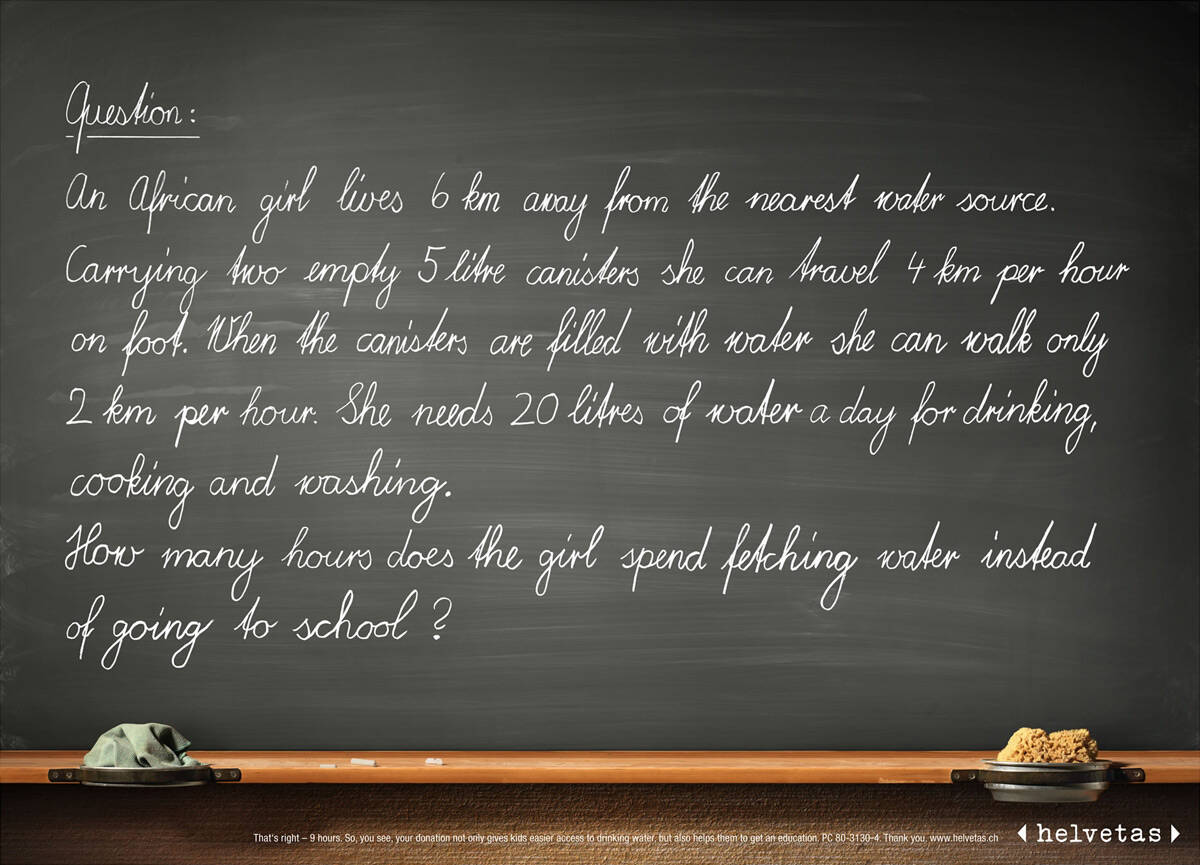 Question:
An African girl lives 6 km away from the nearest water source.
Carrying two empty 5 litre canisters she can travel 4 km per hour
on foot. When the canisters are filled with water she can walk only
2 km per hour. She needs 20 litres of water a day for drinking,
cooking and washing.
How many hours does the girl spend fetching water instead
of going to school?
That's right – 9 hours. So, you see, your donation not only gives kids easier access to drinking water, but also helps them to get an education. PC 80-3130-4. Thank you. www.helvetas.ch
helvetas